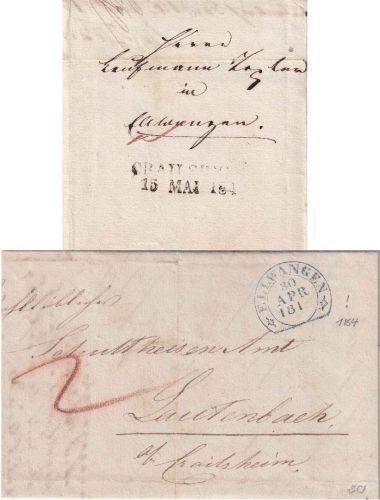 Herrn
Kaufmann
in
Ellwangen.
CRAILSHEIM
15 MAI 184
ELLWANGEN
30
APR
184
!
1854
2
Schultheisen Amt
Lautenbach
a/ Crailsheim.